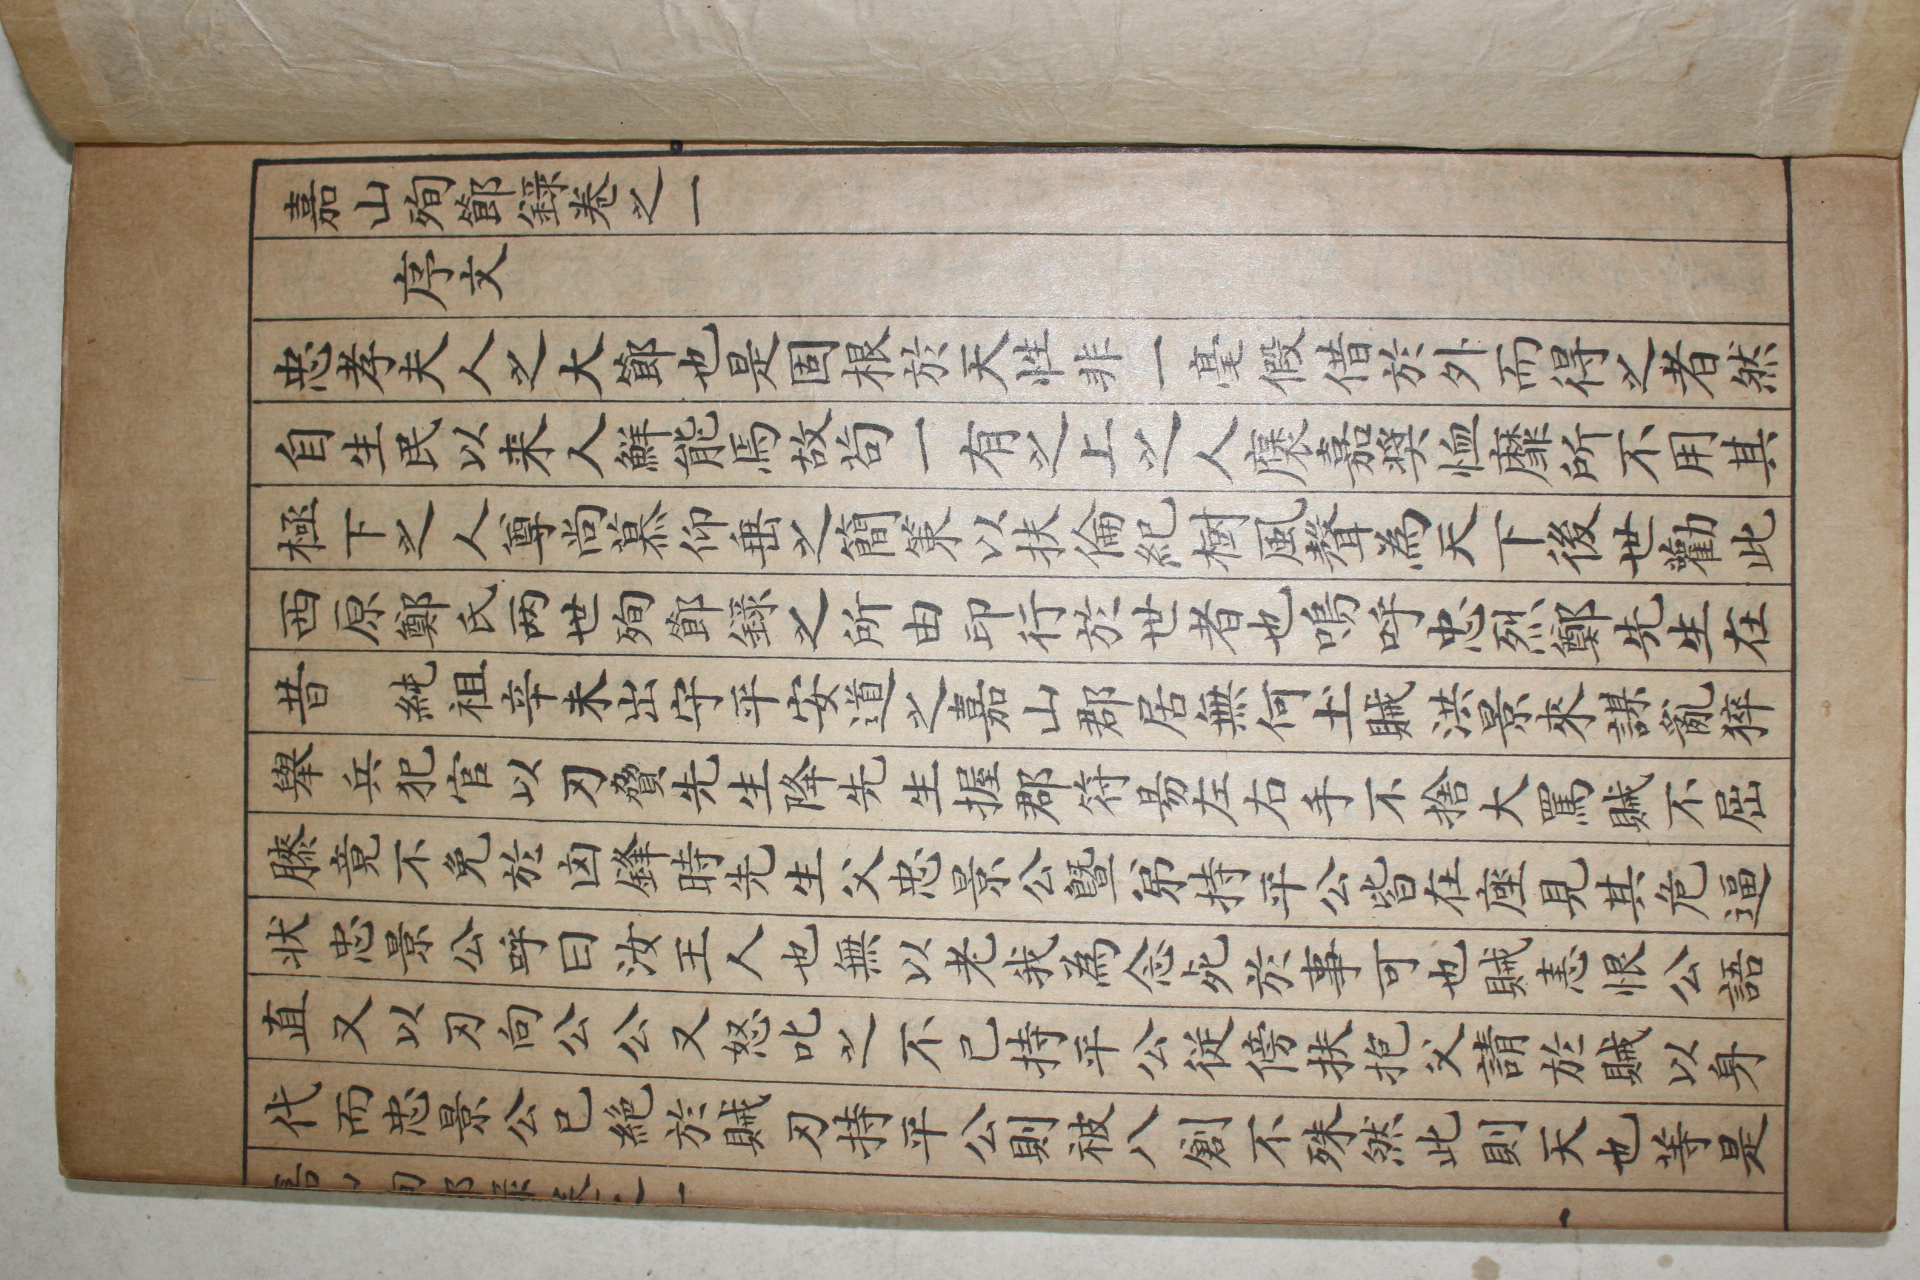 嘉山殉節錄卷之一
序文
忠孝夫人之大節也是固根於天性非一毫假借於外而得之者然
自生民以来人鮮能焉故苟一有之上之人褒嘉奬恤靡所不用其
極下之人尊尚慕仰垂之簡策以扶倫紀樹風聲為天下後世勸此
西原鄭氏兩世殉節錄之所由印行於世者也嗚呼忠烈鄭先生在
昔 純祖辛未出守平安道之嘉山郡居無何土賊洪景來謀亂猝
舉兵犯官以刃脅先生降先生握郡符易左右手不捨大罵賊不屈
膝竟不免於凶鋒時先生父忠景公曁弟持平公皆在座見其危逼
狀忠景公呼曰汝王人也無以老我為念死於事可也賊恚恨公語
直又以刃向公公又怒叱之不已持平公従傍扶抱父請於賊以身
代而忠景公已絶於賊刃持平公則被八創不殊然此則天也等是
嘉山殉節錄卷之一
一